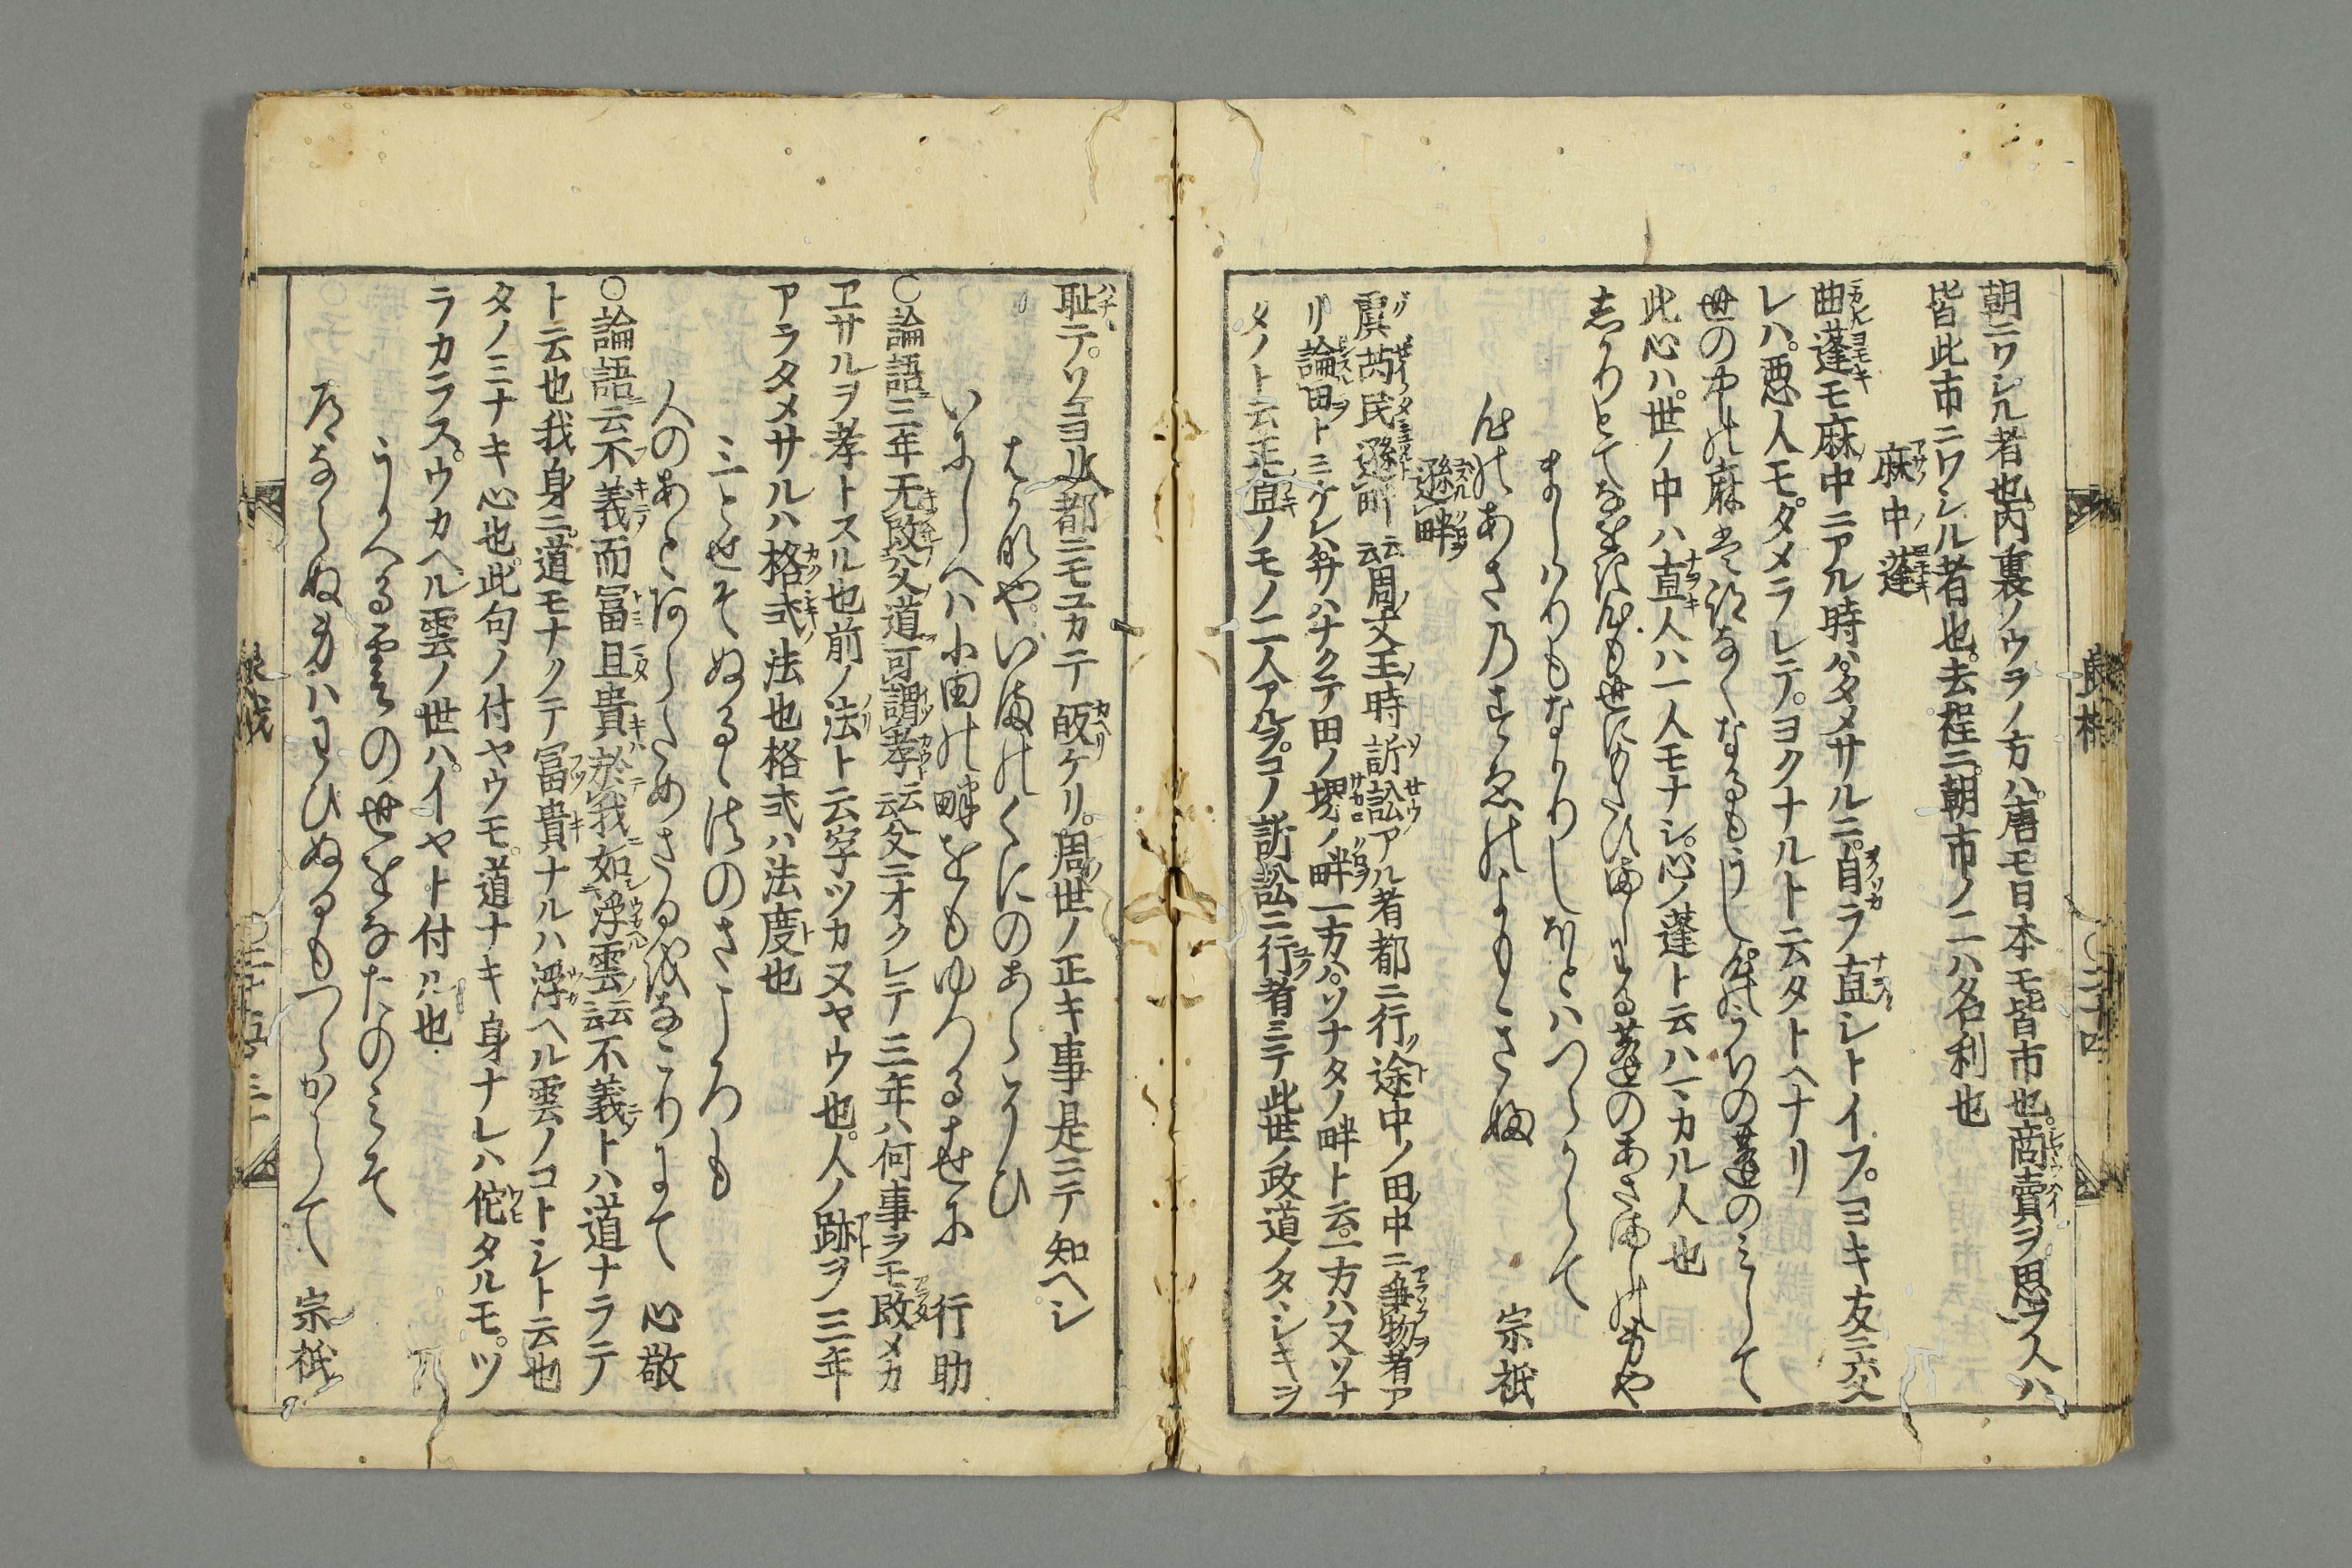 朝ニワシル者也内裏ノウラノ方ハ唐モ日本モ皆市也商賣ヲ思フ人ハ
皆此市ニワシル者也去程ニ朝市ノ二ハ名利也
麻中蓬
曲蓬モ麻中ニアル時ハタメサルニ自ラ直シトイフヨキ友ニ交
レハ悪人モタメラレテヨクナルト云タトヘナリ
世の中の麻は跡なくなるもうし心のうちの蓬のミして
此心ハ世ノ中ハ直人ハ一人モナシ心ノ蓬ト云ハマカル人也
ましハりもなかりしほとハつらからて
心のあさ乃すゑのよもきふ 宗祇
遜畔
虞芮民遜畔云周文王時訴訟アル者都ニ行途中ノ田中ニ争物者ア
リ論田トミケレハサハナクテ田ノ堺ノ畔一方ハソナタノ畔ト云一方ハ又ソナ
タノト云正直ノモノ二人アルヲコノ訴訟ニ行者ミテ此世ノ政道ノタヽシキヲ
耻テソヨリ都ニモユカテ皈ケリ周世ノ正キ事是ニテ知ヘシ
はかなやいまのくにのあらそひ
いにしへハ小田の畔をもゆつるせに 行助
○論語三年无改父道可謂孝云父ニオクレテ三年ハ何事ヲモ改メカ
ヱサルヲ孝トスル也前ノ法ト云字ツカヌヤウ也人ノ跡ヲ三年
アラタメサルハ格式法也格式ハ法度也
三とせそぬるゝ法のさころも
人のあとあらためさるをなこりにて 心敬
○論語云不義而冨且貴於我如浮雲云不義トハ道ナラテ
ト云也我身ニ道モナクテ冨貴ナルハ浮ヘル雲ノコトシト云也
タノミナキ心也此句ノ付ヤウモ道ナキ身ナレハ佗タルモツ
ラカラスウカヘル雲ノ世ハイヤト付ル也
うかへる雲の世をなたのミそ
道ならぬ身ハわひぬるもつらからて 宗祇